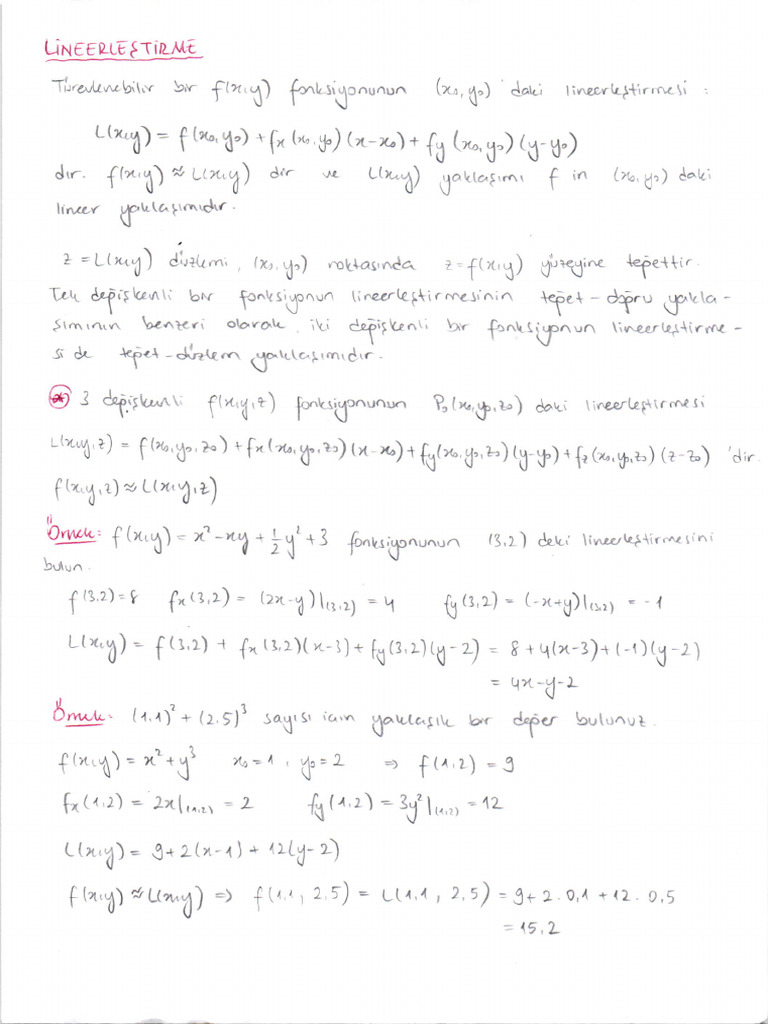 LİNEERLEŞTİRME
Türevlenebilir bir f(x,y) fonksiyonunun (x₀,y₀) 'daki lineerleştirmesi :
L(x,y) = f(x₀,y₀) + fx(x₀,y₀)(x-x₀) + fy(x₀,y₀)(y-y₀)
dır. f(x,y) ≈ L(x,y) dir ve L(x,y) yaklaşımı f in (x₀,y₀) daki
lineer yaklaşımıdır.
z = L(x,y) düzlemi, (x₀,y₀) noktasında z=f(x,y) yüzeyine teğettir.
Tek değişkenli bir fonksiyonun lineerleştirmesinin teğet-doğru yakla-
şımının benzeri olarak, iki değişkenli bir fonksiyonun lineerleştirme-
si de teğet-düzlem yaklaşımıdır.
* 3 değişkenli f(x,y,z) fonksiyonunun P₀(x₀,y₀,z₀) daki lineerleştirmesi
L(x,y,z) = f(x₀,y₀,z₀) + fx(x₀,y₀,z₀)(x-x₀) + fy(x₀,y₀,z₀)(y-y₀) + fz(x₀,y₀,z₀)(z-z₀) 'dir.
f(x,y,z) ≈ L(x,y,z)
Örnek: f(x,y) = x² - xy + ½y² + 3 fonksiyonunun (3,2) deki lineerleştirmesini
bulun.
f(3,2) = 8 fx(3,2) = (2x-y)|(3,2) = 4 fy(3,2) = (-x+y)|(3,2) = -1
L(x,y) = f(3,2) + fx(3,2)(x-3) + fy(3,2)(y-2) = 8 + 4(x-3) + (-1)(y-2)
= 4x-y-2
Örnek: (1.1)² + (2.5)³ sayısı için yaklaşık bir değer bulunuz.
f(x,y) = x² + y³ x₀=1, y₀=2 ⇒ f(1,2) = 9
fx(1,2) = 2x|(1,2) = 2 fy(1,2) = 3y²|(1,2) = 12
L(x,y) = 9 + 2(x-1) + 12(y-2)
f(x,y) ≈ L(x,y) ⇒ f(1.1, 2.5) = L(1.1, 2.5) = 9 + 2.0,1 + 12.0,5
= 15.2